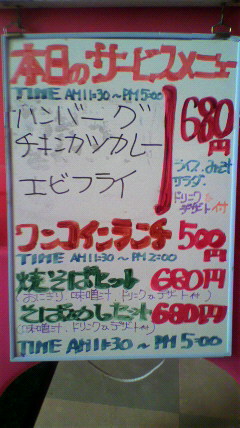 本日のサービスメニュー
TIME AM11:30~PM5:00
ハンバーグ
チキンカツカレー
エビフライ
680円
ライス、みそ汁
サラダ、
ドリンク&
デザート付
ワンコインランチ 500円
TIME AM11:30~PM2:00
焼そばセット 680円
(おにぎり 味噌汁 ドリンク&デザート付)
そばめしセット 680円
(味噌汁、ドリンク&デザート付)
TIME AM11:30~PM5:00